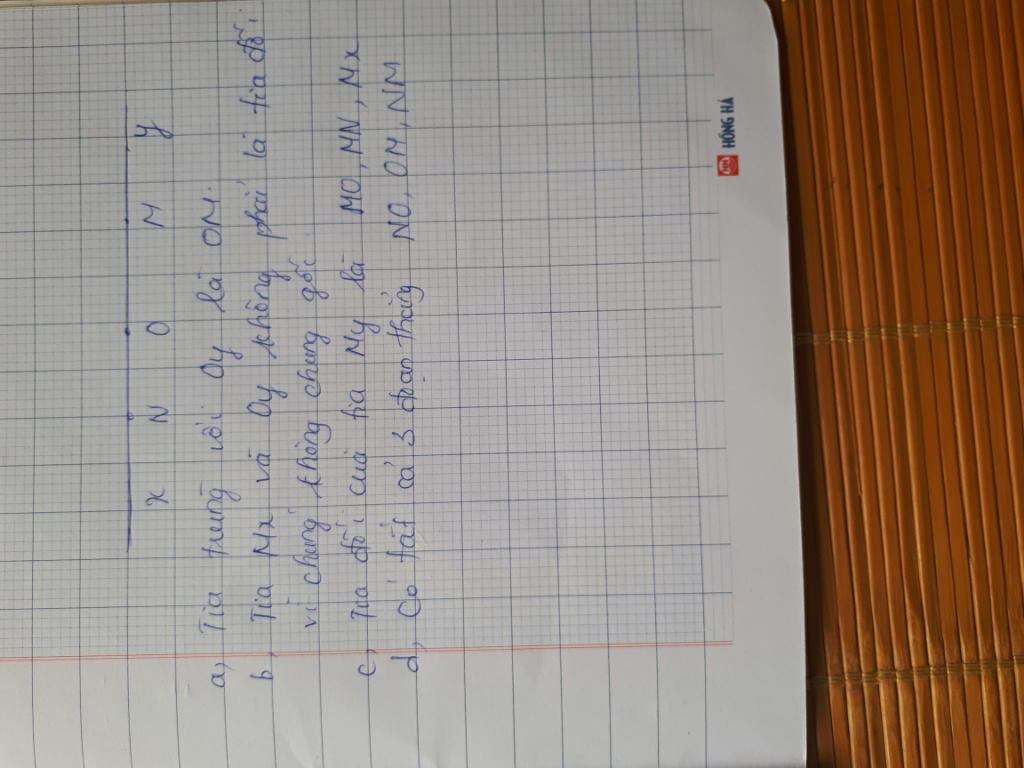 x N O M y
a, Tia trùng với Oy là OM.
b, Tia Nx và Oy không phải là tia đối
vì chúng không chung gốc.
c, Tia đối của tia My là MO, MN, Mx
d, Có tất cả 3 đoạn thẳng NO, OM, NM
HỒNG HÀ